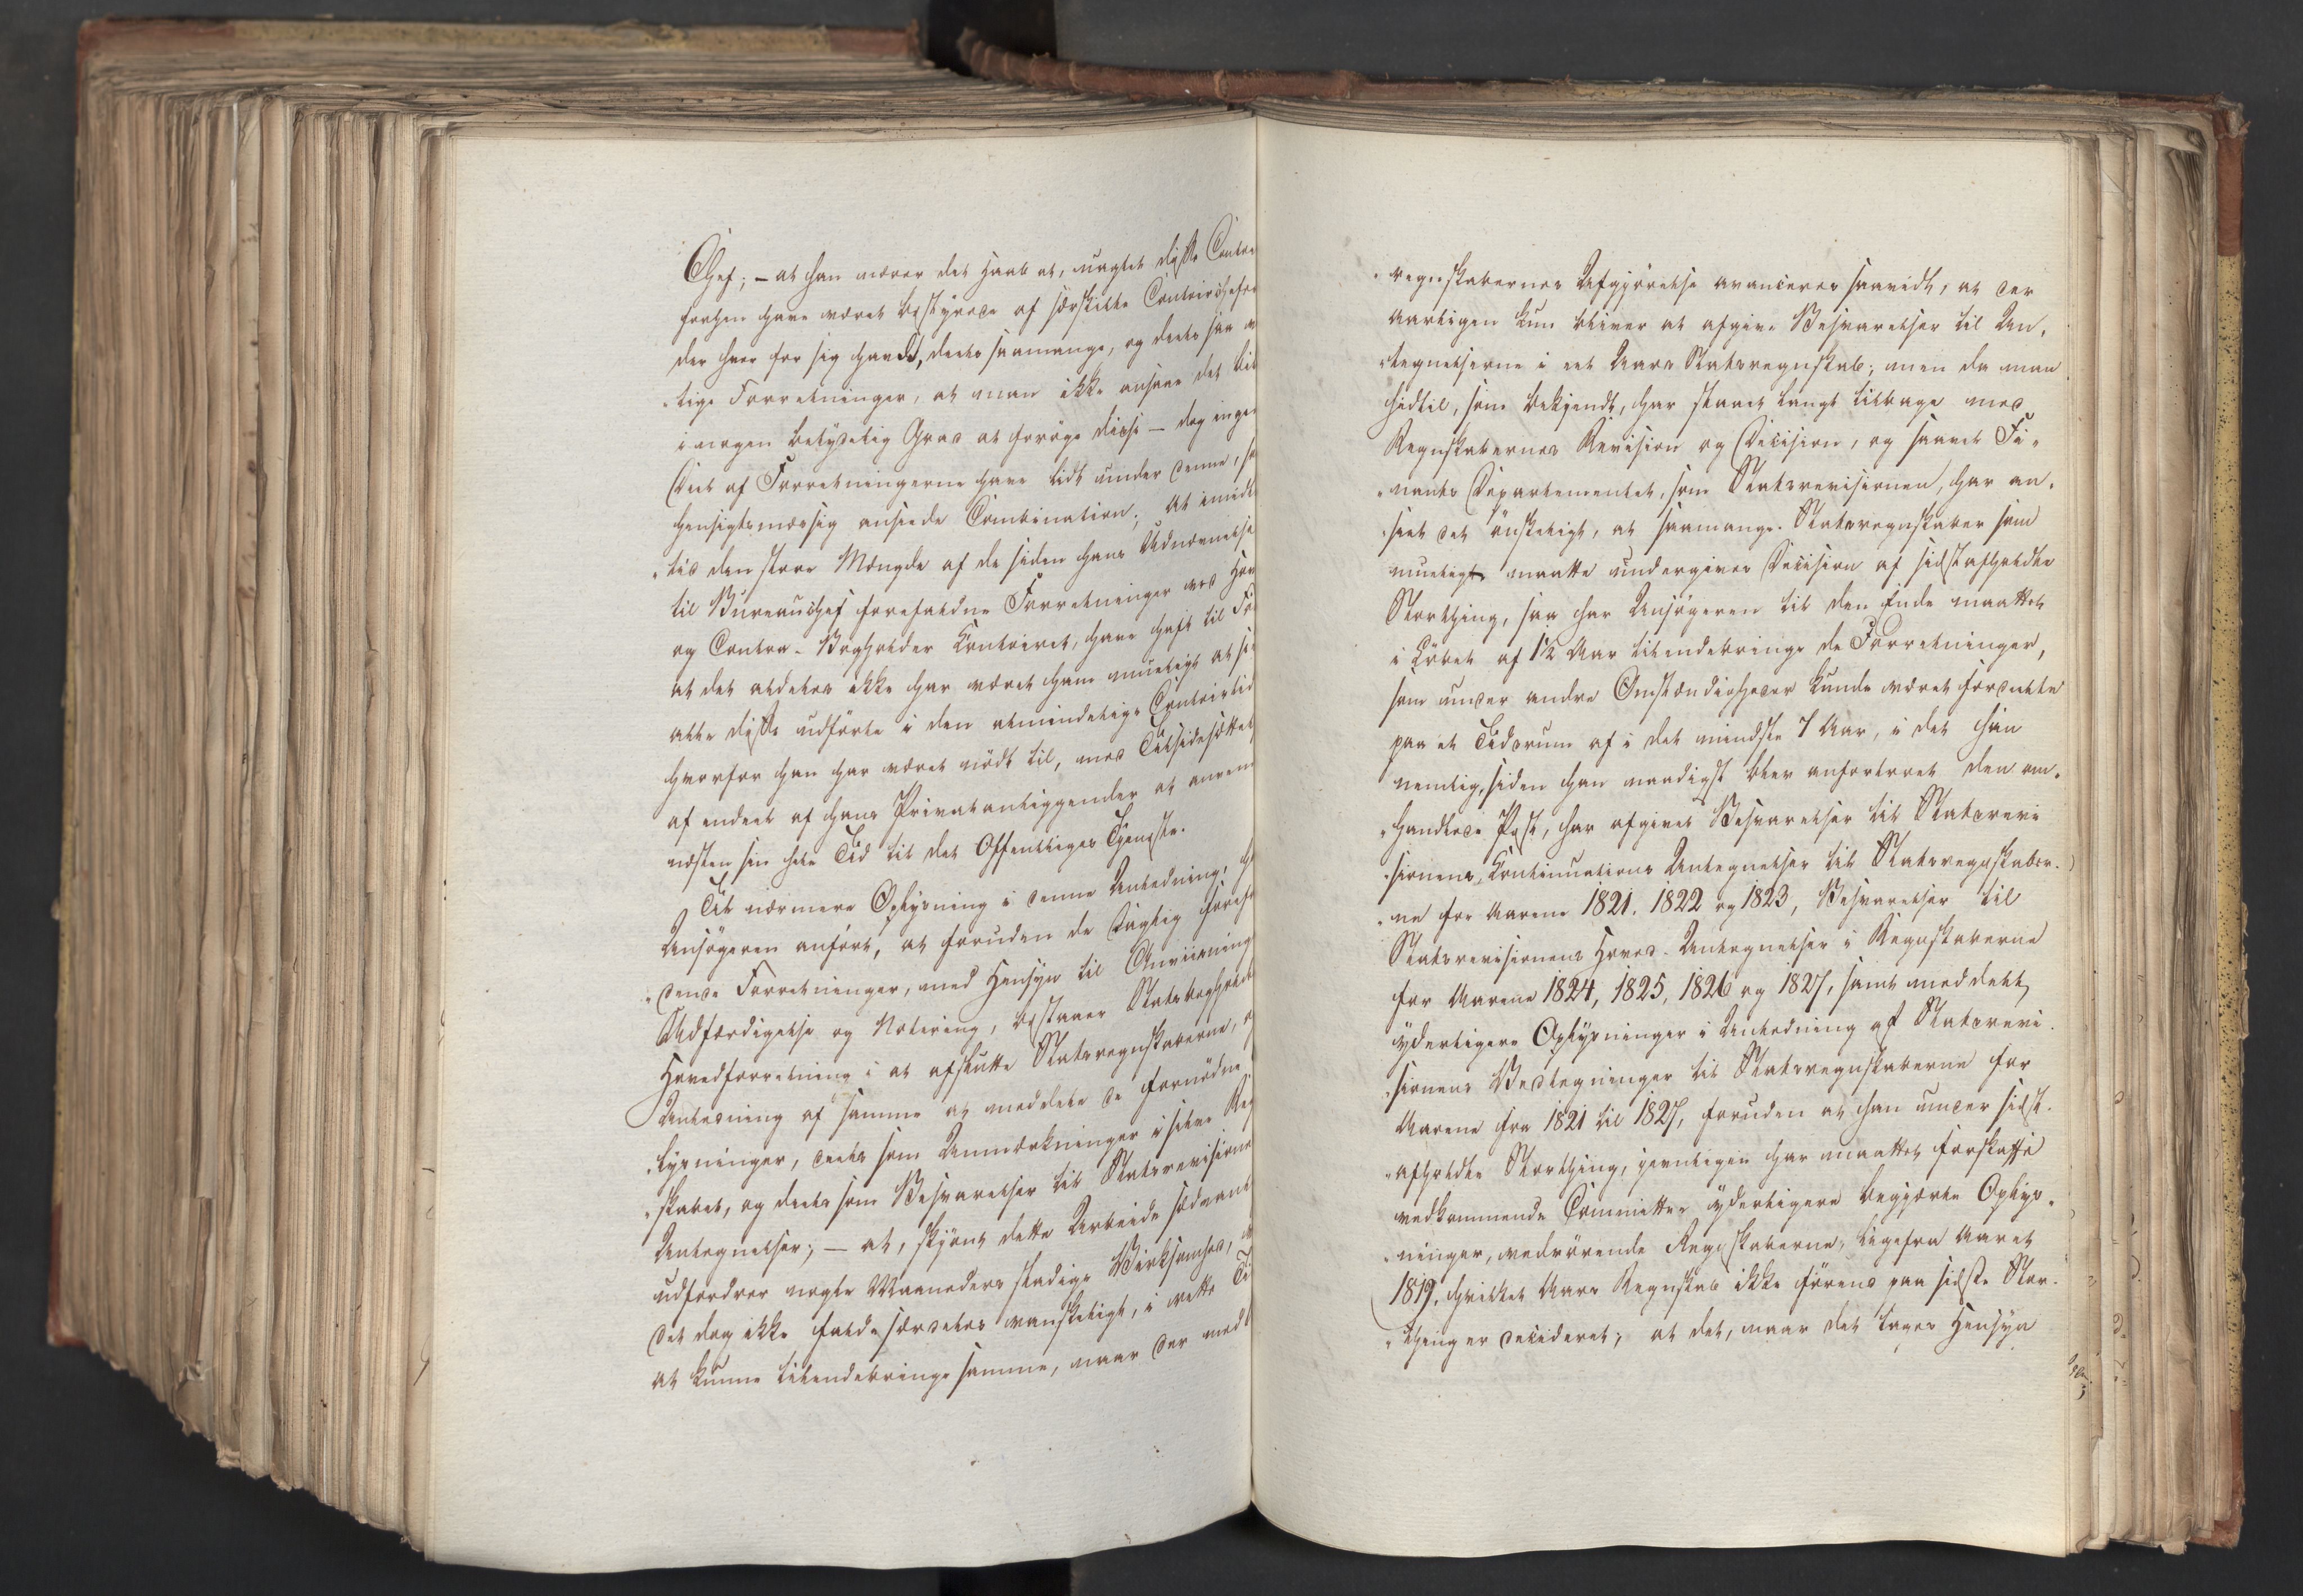 Chef; – at han nærer det Haab at, uagtet disse Contoi
forhen have været bestyrede af særskilte Contoirchefer
der hver for sig havde, deels saamange, og deels saa v
„tige Forretninger, at man ikke ansaae det til
i nogen betydelig Grad at forøge disse – dog ingen
Deel af Forretningerne have lidt under denne, so
hensigtsmæssig ansede Combination; at imid
„tid den store Mængde af de siden hans Udnævnelse
til Bureauchef forefaldne Forretninger ved Hov
og Contra-Bogholder Contoiret, have havt til Fø
at det aldeles ikke har været ham mueligt at se
alle disse udførte i den almindelige Contoirtid
hvorfor han har været nødt til, med Tilsidesættels
af endeel af hans Privatanliggender at anven
næsten sin hele Tid til det Offentliges Tjeneste.
Til nærmere Oplysning i denne Anledning, h
Ansøgeren anført, at foruden de daglig forefa
„dende Forretninger, med Hensyn til Anviisning
Udfærdigelse og Notering, bestaaer Statsboghold
Hovedforretning i at afslutte Statsregnskaberne, o
Anledning af samme at meddele de fornødne
„lysninger, deels som Anmærkninger i selve Reg
„skabet, og deels som Besvarelser til Statsrevisione
Antegnelser; – at, skjønt dette Arbeide sædvanl
udfordrer nogle Maaneders stadige Virksomhed, v
det dog ikke falde særdeles vanskeligt, i rette Ti
at kunne tilendebringe samme, naar der med
„regnskabernes Afgjørelse avanceres saavidt, at der
aarligen kun bliver at afgive Besvarelser til An„
„tegnelserne i eet Aars Statsregnskab; men da man
hidtil, som bekjendt, har staaet langt tilbage med
Regnskabernes Revision og Decision, og saavel Fi„
„nants Departementet, som Statsrevisionen, har an„
„seet det ønskeligt, at saamange Statsregnskaber som
mueligt maatte undergives Decision af sidstafholdte
Storthing, saa har Ansøgeren til den Ende maattet
i Løbet af 1½ Aar tilendebringe de Forretninger,
som under andre Omstændigheder kunde været fordeelte
paa et Tidsrum af i det mindste 7 Aar, i det han
nemlig, siden han naadigst blev anfortroet den om„
„handlede Post, har afgivet Besvarelser til Statsrevi
„sionens Continuations Antegnelser til Statsregnskaber„
„ne for Aarene 1821, 1822 og 1823, Besvarelser til
Statsrevisionens Hoved-Antegnelser i Regnskaberne
for Aarene 1824, 1825, 1826 og 1827, samt meddeelt
yderligere Oplysninger i Anledning af Statsrevi
„sionens Vedtegninger til Statsregnskaberne for
Aarene fra 1821 til 1827, foruden at han under sidst„
„afholdte Storthing, jevnligen har maattet forskaffe
vedkommende Committee yderligere begjærte Oplys„
„ninger, vedrørende Regnskaberne, ligefra Aaret
1819, hvilket Aars Regnskab ikke førend paa sidste Stor„
„thing er decideret; at det, naar det tages Hensyn